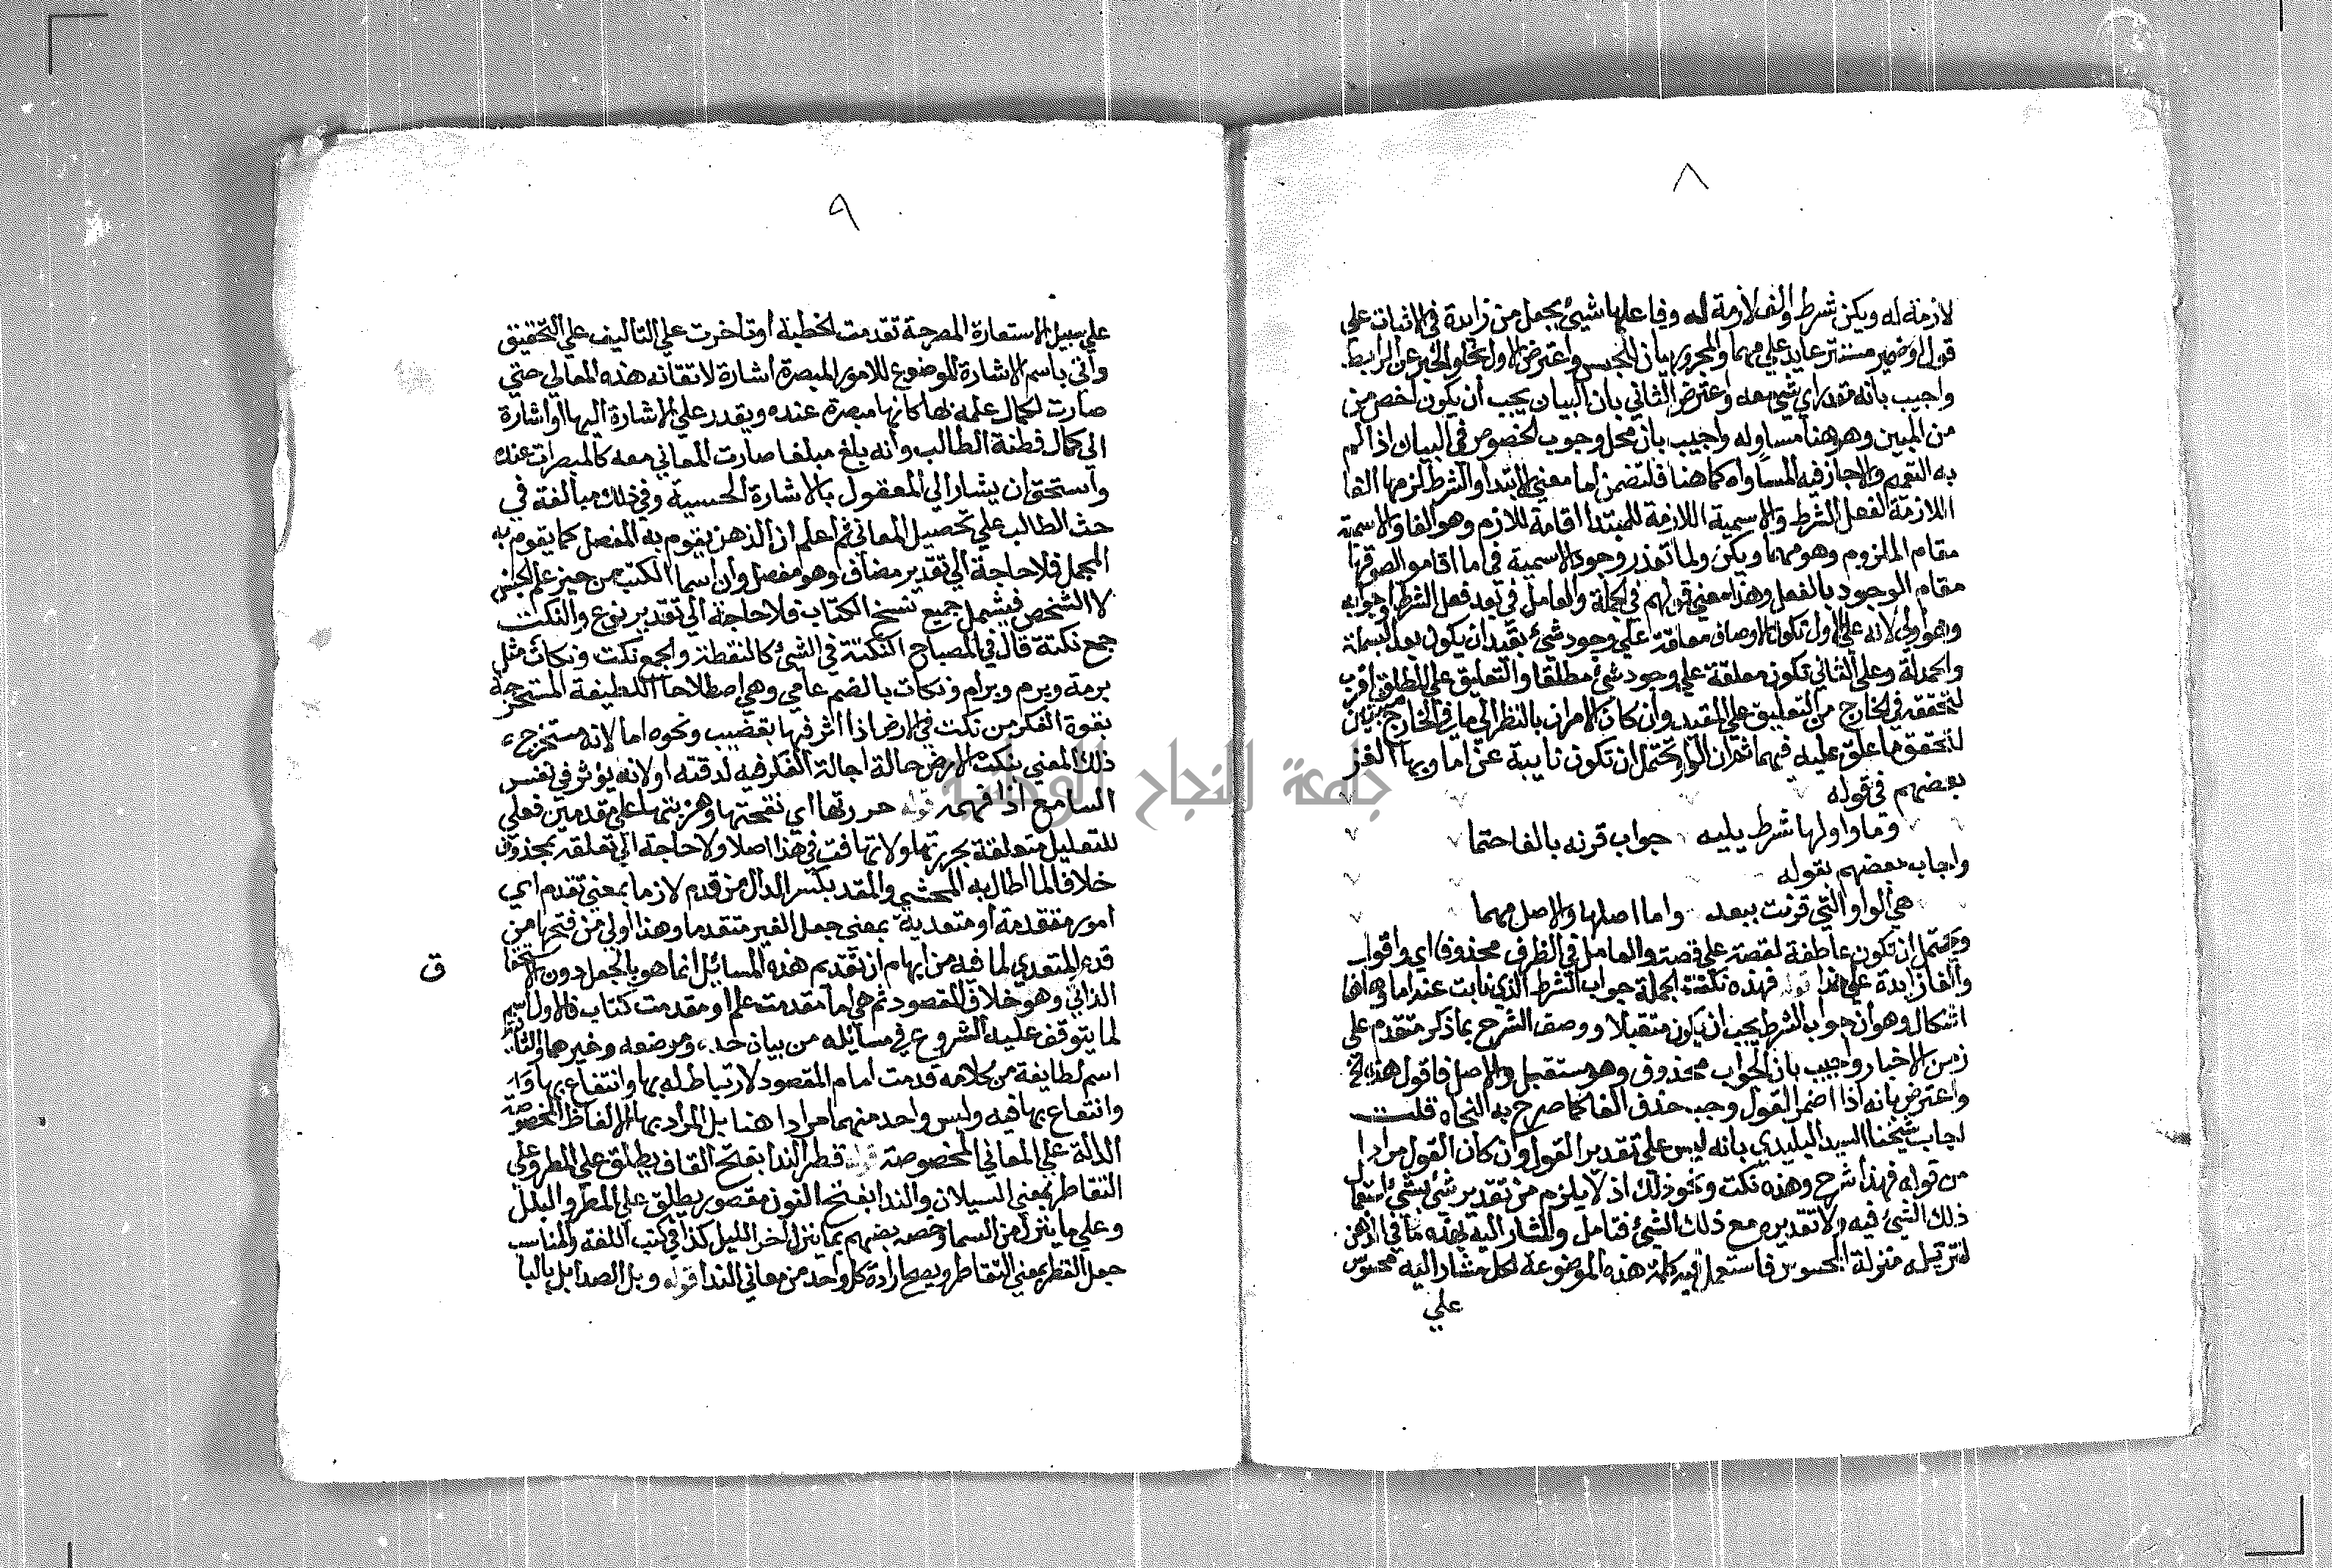 ٨
لازمة له ويكن شرط والفا لازمة له وفاعلها شيئ بجعل من زايدة في الاثبات علي
قول او ضمير مستتر عايد علي مهما والمجرور بيان للجنس واعترض الاول بخلو الخبر عن الرابط
واجيب بانه مقدر اي شيئ معه واعترض الثاني بان البيان يجب أن يكون أخص من
من المبين وهو هنا مساو له واجيب بان محل وجوب الخصوص في البيان اذا لم
به التعميم والا جاز فيه المساواه كما هنا فلتضمن اما معني الابتدا والشرط لزمها الفا
اللازمة لفعل الشرط والاسمية اللازمة للمبتدا اقامة للازم وهو الفا والاسمية
مقام الملزوم وهو مهما ويكن ولما تعذر وجود الاسمية في اما اقاموا لصوقها
مقام الوجود بالفعل وهذا معني قولهم في الجملة والعامل في بعد فعل الشرط او جوابه
وهو اولي لانه علي الاول تكون الاوصاف معلقة علي وجود شيئ بقيد ان يكون بعد البسملة
والحمدلة وعلي الثاني تكون معلقة علي وجود شيئ مطلقا والتعليق علي المطلق اقرب
لتحققه في الخارج من التعليق علي المقيد وان كان الامران بالنظر الي ما في الخارج
لتحقق ما علق عليه فيهما ثم ان الواو تحتمل ان تكون نايبة عن اما وبها الغز
بعضهم في قوله
وما واو لها شرط يليه جواب قرنه بالفا حتما
واجاب بعضهم بقوله
هي الواو التي قرنت ببعد واما اصلها والاصل مهما
وتحتمل ان تكون عاطفة لقصة علي قصة والعامل في الظرف محذوفا اي واقول
والفا زايدة علي هذا قوله فهذه نكت الجملة جواب الشرط الذي نابت عنه اما وهاهنا
اشكال وهو أن جواب الشرط يجب ان يكون مستقبلا ووصف الشرح بما ذكر متقدم علي
زمن الاخبار واجيب بان الجواب محذوف وهو مستقبل والاصل فاقول هذه الخ
واعترض بانه اذا اضمر القول وجب حذف الفا كما صرح به النحاه قلت
اجاب شيخنا السيد البليدي بانه ليس علي تقدير القول وأن كان القول مرادا
من قوله فهذا شرح وهذه نكت ونحو ذلك اذ لا يلزم من تقدير شيئ بشيئ استعمال
ذلك الشيئ فيه ولا تقديره مع ذلك الشيئ فتامل والمشار اليه بهذه ما في الذهن
لتنزيله منزلة المحسوس فاستعمل فيه كلمة هذه الموضوعة لكل مشار اليه محسوس
علي
٩
علي سبيل الاستعارة المصرحة تقدمت الخطبة أو تأخرت علي التاليف علي التحقيق
وأتي باسم الاشارة الموضوع للامور المبصرة أشارة لاتقانه هذه المعاني حتي
صارت لكمال علمه بها كانها مبصرة عنده ويقدر علي الاشارة اليها او اشارة
الي كمال فطنة الطالب وأنه بلغ مبلغا صارت المعاني معه كالمبصرات عنده
واستحق ان يشار الي المعقول بالاشارة الحسية وفي ذلك مبالغة في
حث الطالب علي تحصيل المعاني ثم أعلم ان الذهن يقوم به المفصل كما يقوم به
المجمل فلا حاجة الي تقدير مضاف وهو مفصل وأن اسما الكتب من حيز علم الجنس
لا الشخص فيشمل جميع نسخ الكتاب فلا حاجة الي تقدير نوع والنكت
جمع نكتة قال في المصباح النكتة في الشيئ كالنقطة والجمع نكت ونكات مثل
برمة وبرم وبرام ونكات بالضم عامي وهي اصطلاحا اللطيفة المستخرجة
بقوة الفكر من نكت في الارض اذا اثر فيها بقضيب ونحوه اما لانه مستخرج
ذلك المعني ينكت الارض حالة اجالة الفكر فيه لدقته او لانه يؤثر في نفس
السامع اذا فهمه قوله حررتها اي نقحتها وهزبتها علي مقدمتين فعلي
للتعليل متعلقة بحررتها ولا تهافت في هذا اصلا ولا حاجة الي تعلقه بمحذوف
خلافا لما اطال به المحشي والمقدمة بكسر الدال من قدم لازما بمعني تقدم اي
امور متقدمة أو متعدية بمعني جعل الغير متقدما وهذا أولي من فتحها من
قدم المتعدي لما فيه من ايهام ان تقديم هذه المسائل انما هو بالجعل دون الاستحقاق
ق
الذاتي وهو خلاف المقصود ثم هي اما مقدمت علم أو مقدمت كتاب فالاول اسم
لما يتوقف عليه الشروع في مسائله من بيان حده وموضعه وغيرهما والثاني
اسم لطايفة من كلامه قدمت امام المقصود لارتباط له بها وانتفاع بها
وانتفاع بها فيه وليس واحد منهما مرادا هنا بل المراد بها الالفاظ المخصوصة
الدالة علي المعاني المخصوصة قوله قطر الندا بفتح القاف يطلق علي المطر وعلي
التقاطر بمعني السيلان والندا بفتح النون مقصور يطلق علي المطر والبلل
وعلي ما ينزل من السما وخصه بعضهم بما ينزل أخر الليل كذا في كتب اللغة والمناسب
جعل القطر بمعني التقاطر ويصح ارادة كل واحد من معاني الندا قوله وبل الصدا بل بالبا
جامعة النجاح الوطنية